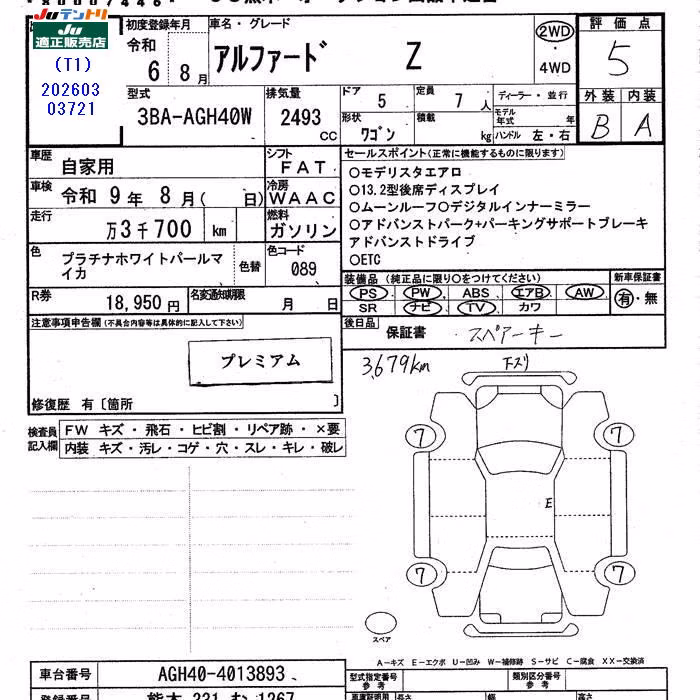 Juテントリ
Ju 適正販売店
(T1)
202603
03721
初度登録年月
令和
6 8月
車名・グレード
アルファード Z
2WD
・
4WD
評価点
5
型式
3BA-AGH40W
排気量
2493
cc
ドア
5
定員
7 人
形状
ワゴン
積載
kg
ディーラー・並行
モデル年式 年
ハンドル 左・右
外装 内装
B A
車歴
自家用
シフト
FAT
車検
令和 9年 8月( 日)
冷房
WAAC
走行
万3千700 km
燃料
ガソリン
色
プラチナホワイトパールマイカ
色替
色コード
089
R券
18,950円
名変通知期限
月 日
セールスポイント(正常に機能するものに限ります)
○モデリスタエアロ
○13.2型後席ディスプレイ
○ムーンルーフ○デジタルインナーミラー
○アドバンストパーク+パーキングサポートブレーキ
アドバンストドライブ
○ETC
装備品 (純正品に限り○をつけてください)
PS PW ABS エアB AW
SR ナビ TV カワ
新車保証書
有・無
後日品
保証書 スペアーキー
注意事項申告欄(不具合内容等は具体的に記入して下さい)
プレミアム
修復歴 有〔箇所 〕
3,679km
下スリ
検査員記入欄
FW キズ・飛石・ヒビ割・リペア跡・×要
内装 キズ・汚レ・コゲ・穴・スレ・キレ・破レ
7
7
E
7
7
スペア
A-キズ E-エクボ U-凹み W-補修跡 S-サビ C-腐食 XX-交換済
車台番号
AGH40-4013893
型式指定番号
参考
類別区分番号
参考